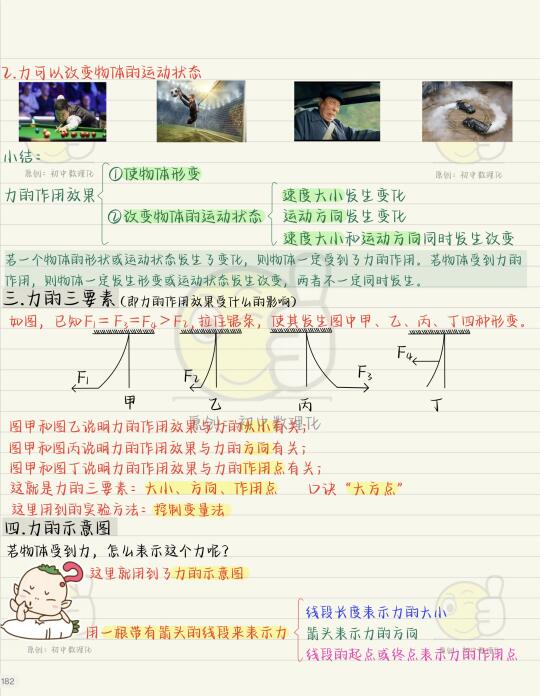 2.力可以改变物体的运动状态
小结：
原创：初中数理化
原创：初中数理化
力的作用效果
①使物体形变
②改变物体的运动状态
速度大小发生变化
运动方向发生变化
速度大小和运动方向同时发生改变
若一个物体的形状或运动状态发生了变化，则物体一定受到了力的作用。若物体受到力的
作用，则物体一定发生形变或运动状态发生改变，两者不一定同时发生。
三.力的三要素(即力的作用效果受什么的影响)
如图，已知F₁=F₃=F₄>F₂,拉住锯条，使其发生图中甲、乙、丙、丁四种形变。
F₁ F₂ F₃ F₄
甲 乙 丙 丁
原创：初中数理化
图甲和图乙说明力的作用效果与力的大小有关；
图甲和图丙说明力的作用效果与力的方向有关；
图甲和图丁说明力的作用效果与力的作用点有关；
这就是力的三要素：大小、方向、作用点 口诀“大方点”
这里用到的实验方法：控制变量法
四.力的示意图
若物体受到力，怎么表示这个力呢？
这里就用到了力的示意图
用一根带有箭头的线段来表示力
线段长度表示力的大小
箭头表示力的方向
线段的起点或终点表示力的作用点
原创：初中数理化
182